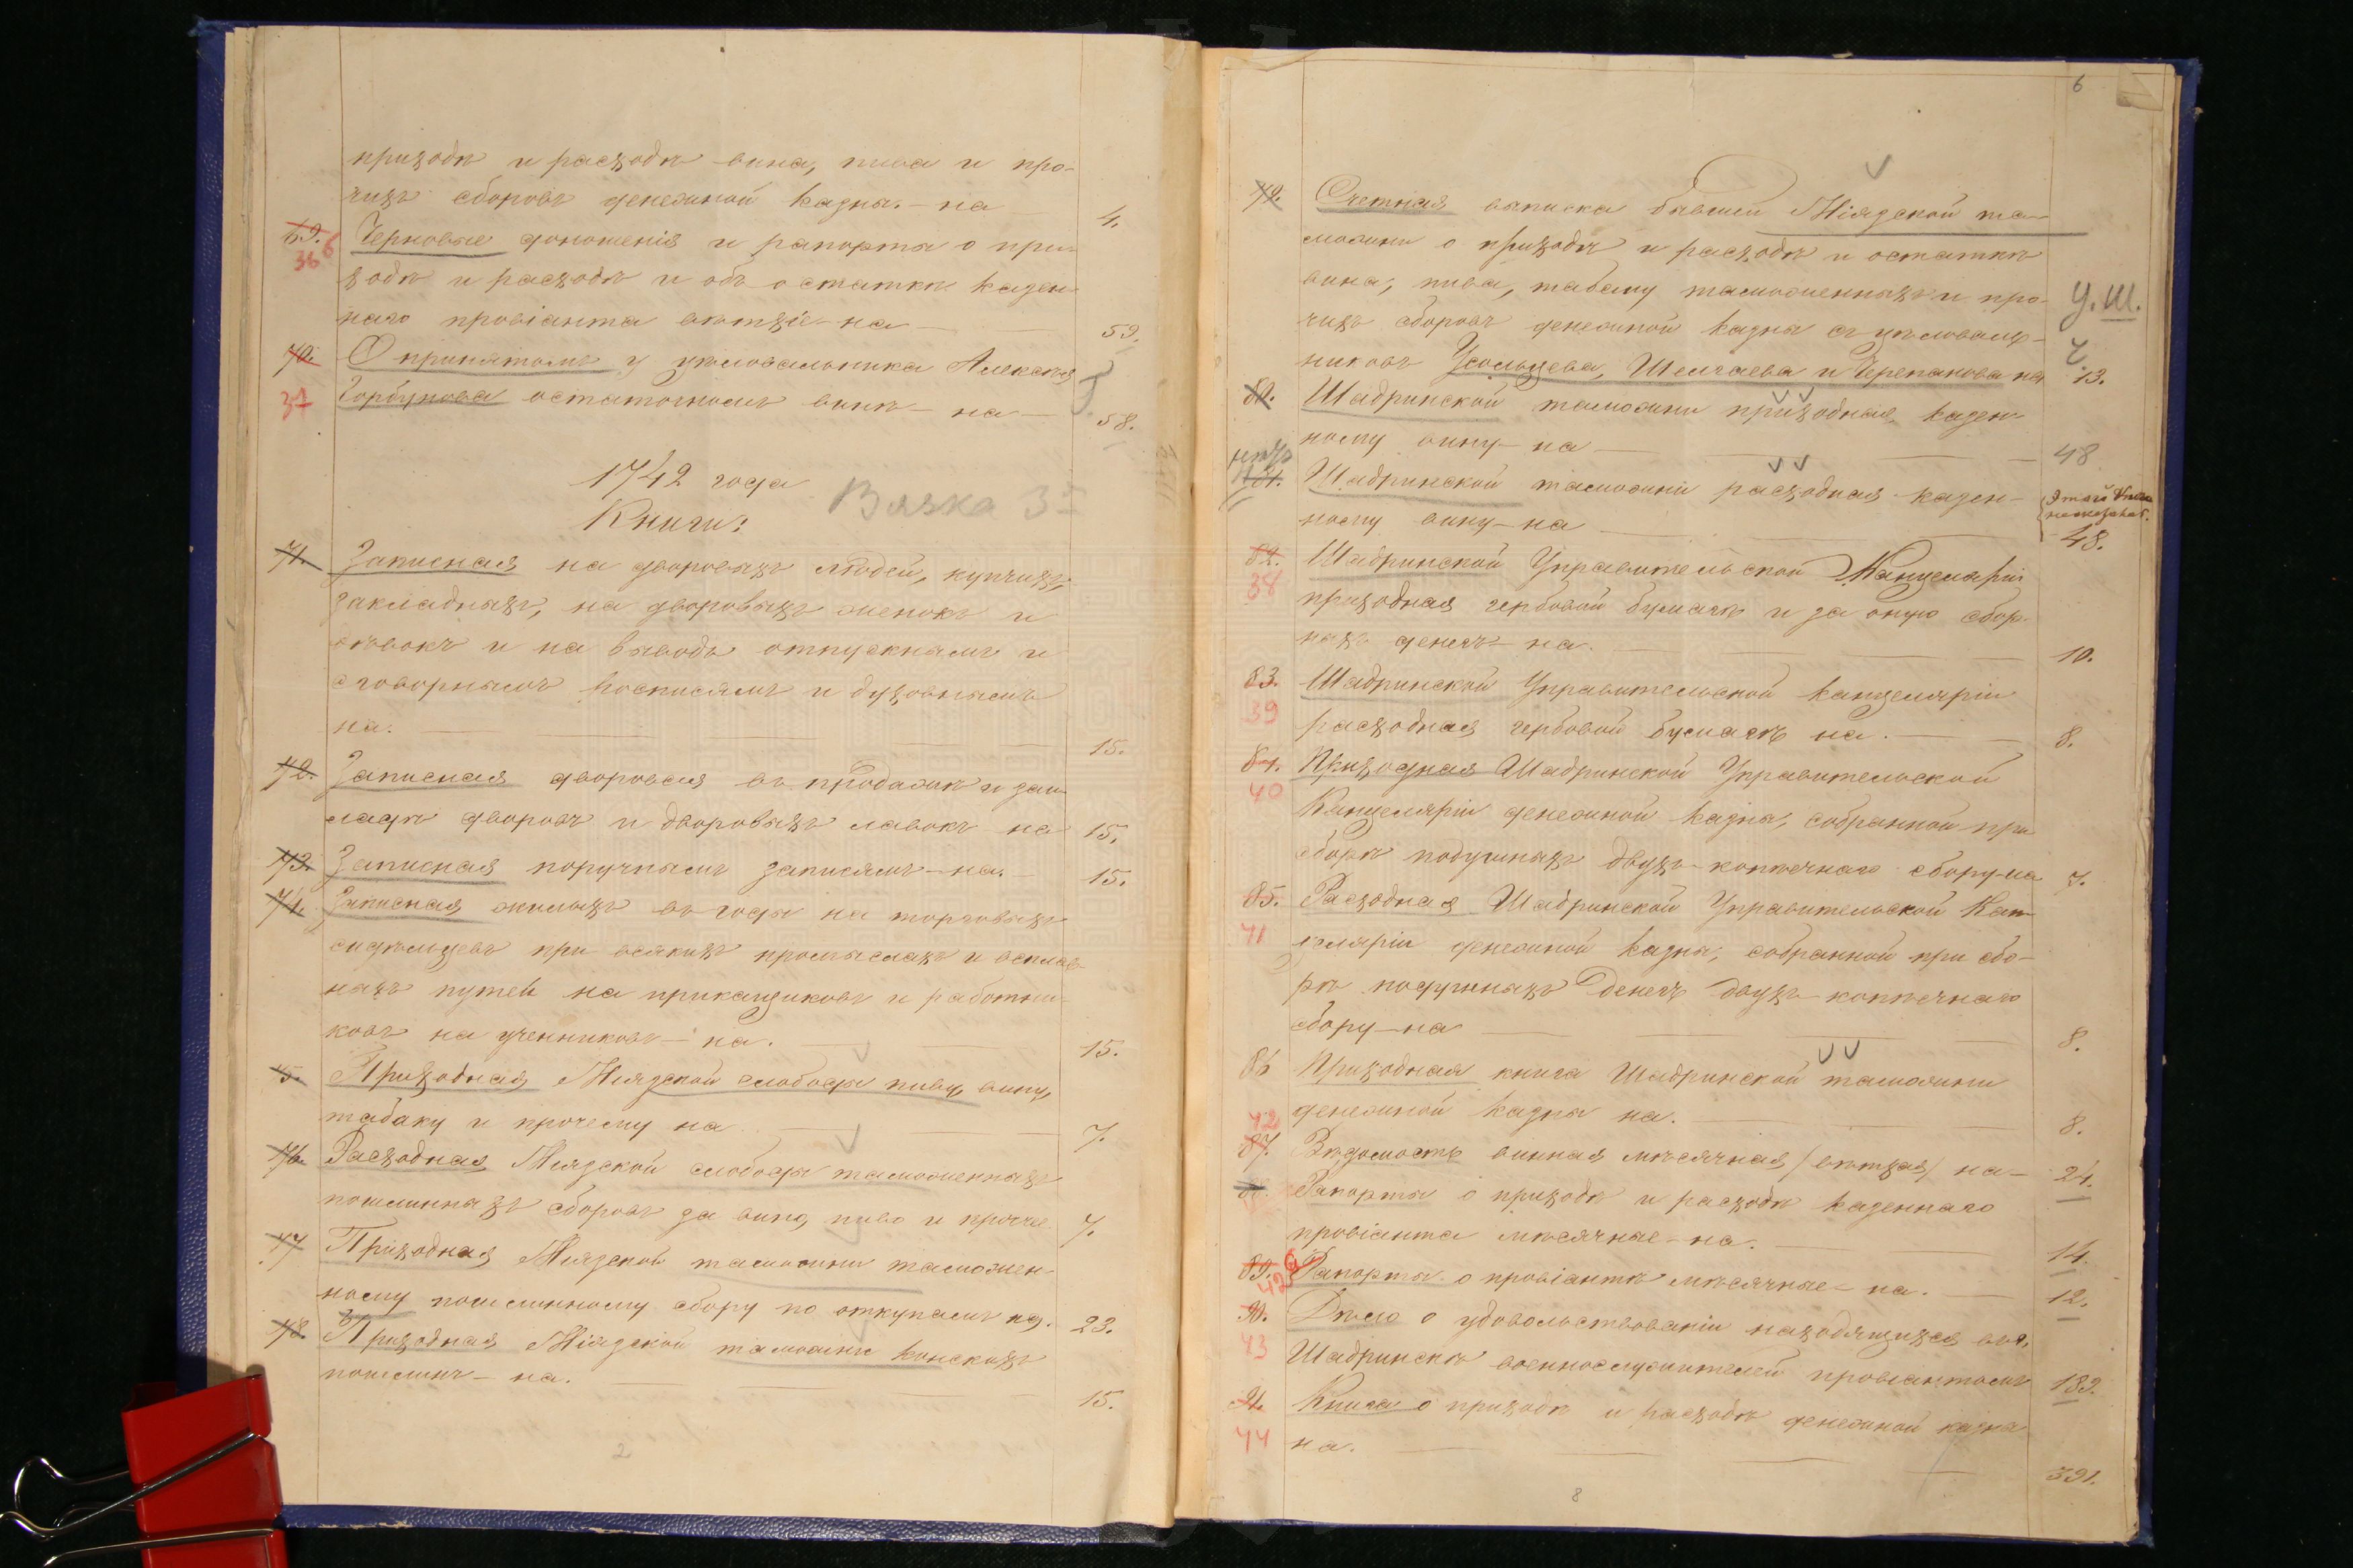 приходѣ и расходѣ вина, пива и про-
чихъ сборовъ денежной казны. на
4.
69. Черновые доношенія и рапорты о при-
36 б
ходѣ и расходѣ и объ остаткѣ казен-
наго провіанта ветхіе - на
59.
70. О принятомъ у цѣловальника Алексѣя
37 Горбунова остаточномъ винѣ - на
58.
1742 года
Вязка 3я
Книги:
71. Записная на дворовыхъ людей, купчихъ,
закладныхъ, на дворовыхъ женокъ и
дѣвокъ и на выводъ отпускнымъ и
сговорнымъ росписямъ и духовнымъ
на.
15.
72. Записная дворовая въ продажѣ и зак-
ладѣ дворовъ и дворовыхъ лавокъ на
15.
73. Записная поручнымъ записямъ - на.
15.
74. Записная жилыхъ въ годы на торговыхъ
сидѣльцевъ при всякихъ промыслахъ и
ныхъ путей на прикащиковъ и работни-
ковъ на учениковъ - на.
15.
75. Приходная Міядской слободы пиву, вину,
табаку и прочему на
7.
76. Расходная Міядской слободы таможенныхъ
пошлинныхъ сборовъ за вино, пиво и прочее
7.
77 Приходная Міядской таможни таможен-
ному пошлинному сбору по откупамъ на.
23.
78. Приходная Міядской таможни конскихъ
пошлинъ - на.
15.
2
6
79. Счетная выписка бывшей Міядской та-
можни о приходѣ и расходѣ и остаткѣ
вина, пива, табаку таможенныхъ и про-
У. Ш.
чихъ сборовъ денежной казны съ цѣловаль-
Ч.
никовъ Усольцева, Шелгаева и Черепанова на
13.
80. Шадринской таможни приходная, казен-
ному вину - на
48
нѣтъ
81. Шадринской таможни расходная казен-
этой книги
не
ному вину - на
48.
82. Шадринской Управительской Канцеляріи
38
приходная гербовой бумагѣ и за оную сбор-
ныхъ денегъ - на.
10.
83. Шадринской Управительской канцеляріи
39
расходная гербовой бумагѣ на.
8.
84. Приходная Шадринской Управительской
40
Канцеляріи денежной казны, собранной при
сборѣ подушныхъ двухъ-копѣечнаго сбору - на
7.
85. Расходная Шадринской Управительской Кан-
41
целяріи денежной казны, собранной при сбо-
рѣ подушныхъ денегъ двухъ-копѣечнаго
сбору - на
8.
86 Приходная книга Шадринской таможни
42
денежной казны на.
8.
87. Вѣдомость винная мѣсячная /ветхая/ на -
24.
88. Рапорты о приходѣ и расходѣ казеннаго
провіанта мѣсячные - на.
14.
89. Рапорты о провіантѣ мѣсячные - на.
42 б
12.
90. Дѣло о удовольствованіи находящихся въ г.
43
Шадринскѣ военнослужителей провіантомъ
189.
91. Книга о приходѣ и расходѣ денежной казны
44
на.
391.
8